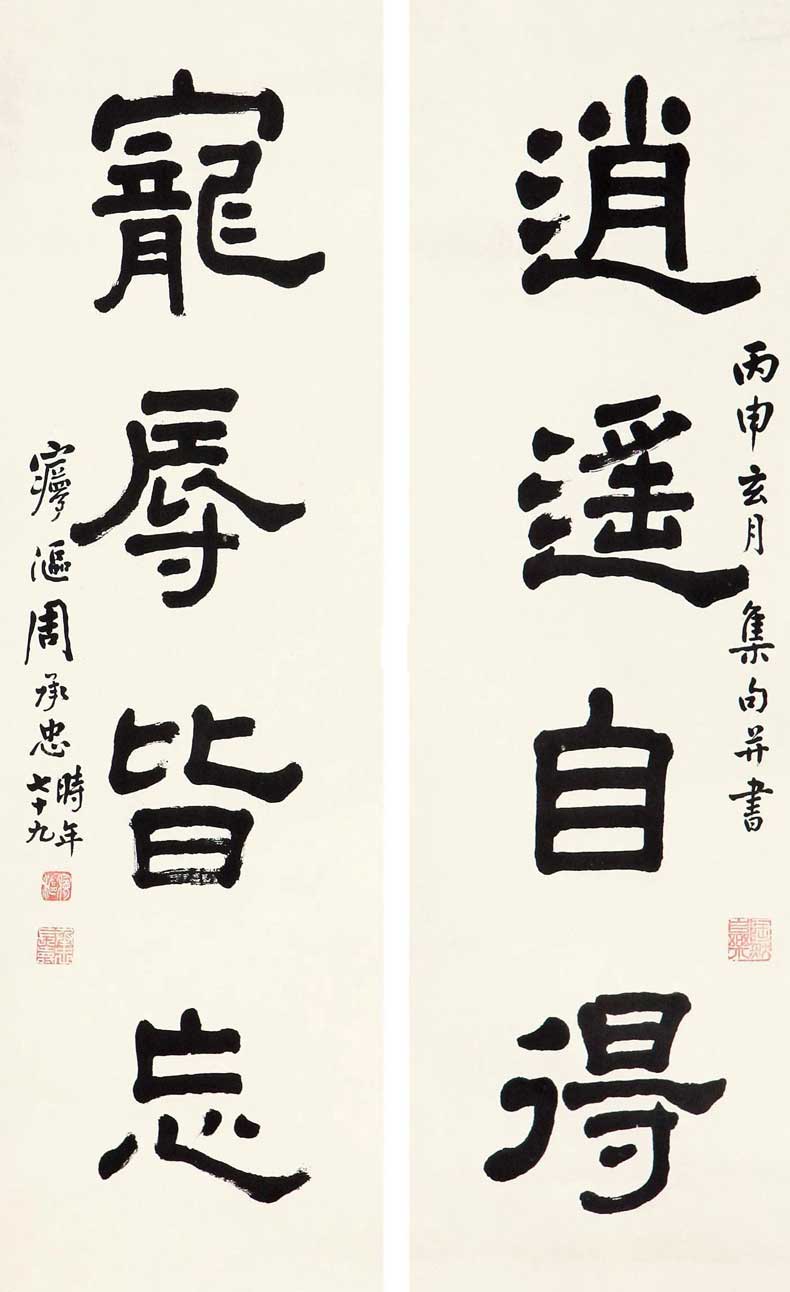 逍遙自得
丙申玄月 集句并書
寵辱皆忘
㝱漚周承忠時年七十九